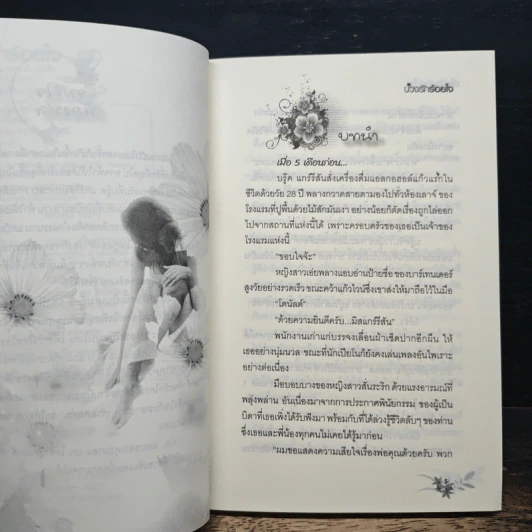 บ่วงรักร้อยใจ
บทนำ
เมื่อ 5 เดือนก่อน...
บรู๊ค แกร์ริสันสั่งเครื่องดื่มแอลกอฮอล์แก้วแรกใน
ชีวิตด้วยวัย 28 ปี พลางกวาดสายตามองไปทั่วห้องเลาจ์ ของ
โรงแรมที่ปูพื้นด้วยไม้สักมันเงา อย่างน้อยก็ตัดเรื่องถูกไล่ออก
ไปจากสถานที่แห่งนี้ได้ เพราะครอบครัวของเธอเป็นเจ้าของ
โรงแรมแห่งนี้
"ขอบใจจ้ะ"
หญิงสาวเอ่ยพลางแอบอ่านป้ายชื่อ ของบาร์เทนเดอร์
สูงวัยอย่างรวดเร็ว ขณะคว้าแก้วไวน์ซึ่งเขาส่งให้มาถือไว้ในมือ
"โดนัลด์"
"ด้วยความยินดีครับ...มิสแกร์ริสัน"
พนักงานเก่าแก่บรรจงเลื่อนผ้าเช็ดปากอีกผืน ให้
เธออย่างนุ่มนวล ขณะที่นักเปียโนก็ยังคงเล่นเพลงอันไพเราะ
อย่างต่อเนื่อง
มือบอบบางของหญิงสาวสั่นระริก ด้วยแรงอารมณ์ที่
พลุ่งพล่าน อันเนื่องมาจากการประกาศพินัยกรรม ของผู้เป็น
บิดาที่เธอเพิ่งได้รับฟังมา พร้อมกับที่ได้ล่วงรู้ชีวิตลับๆ ของท่าน
ซึ่งเธอและพี่น้องทุกคนไม่เคยได้รู้มาก่อน
"ผมขอแสดงความเสียใจเรื่องพ่อคุณด้วยครับ พวก